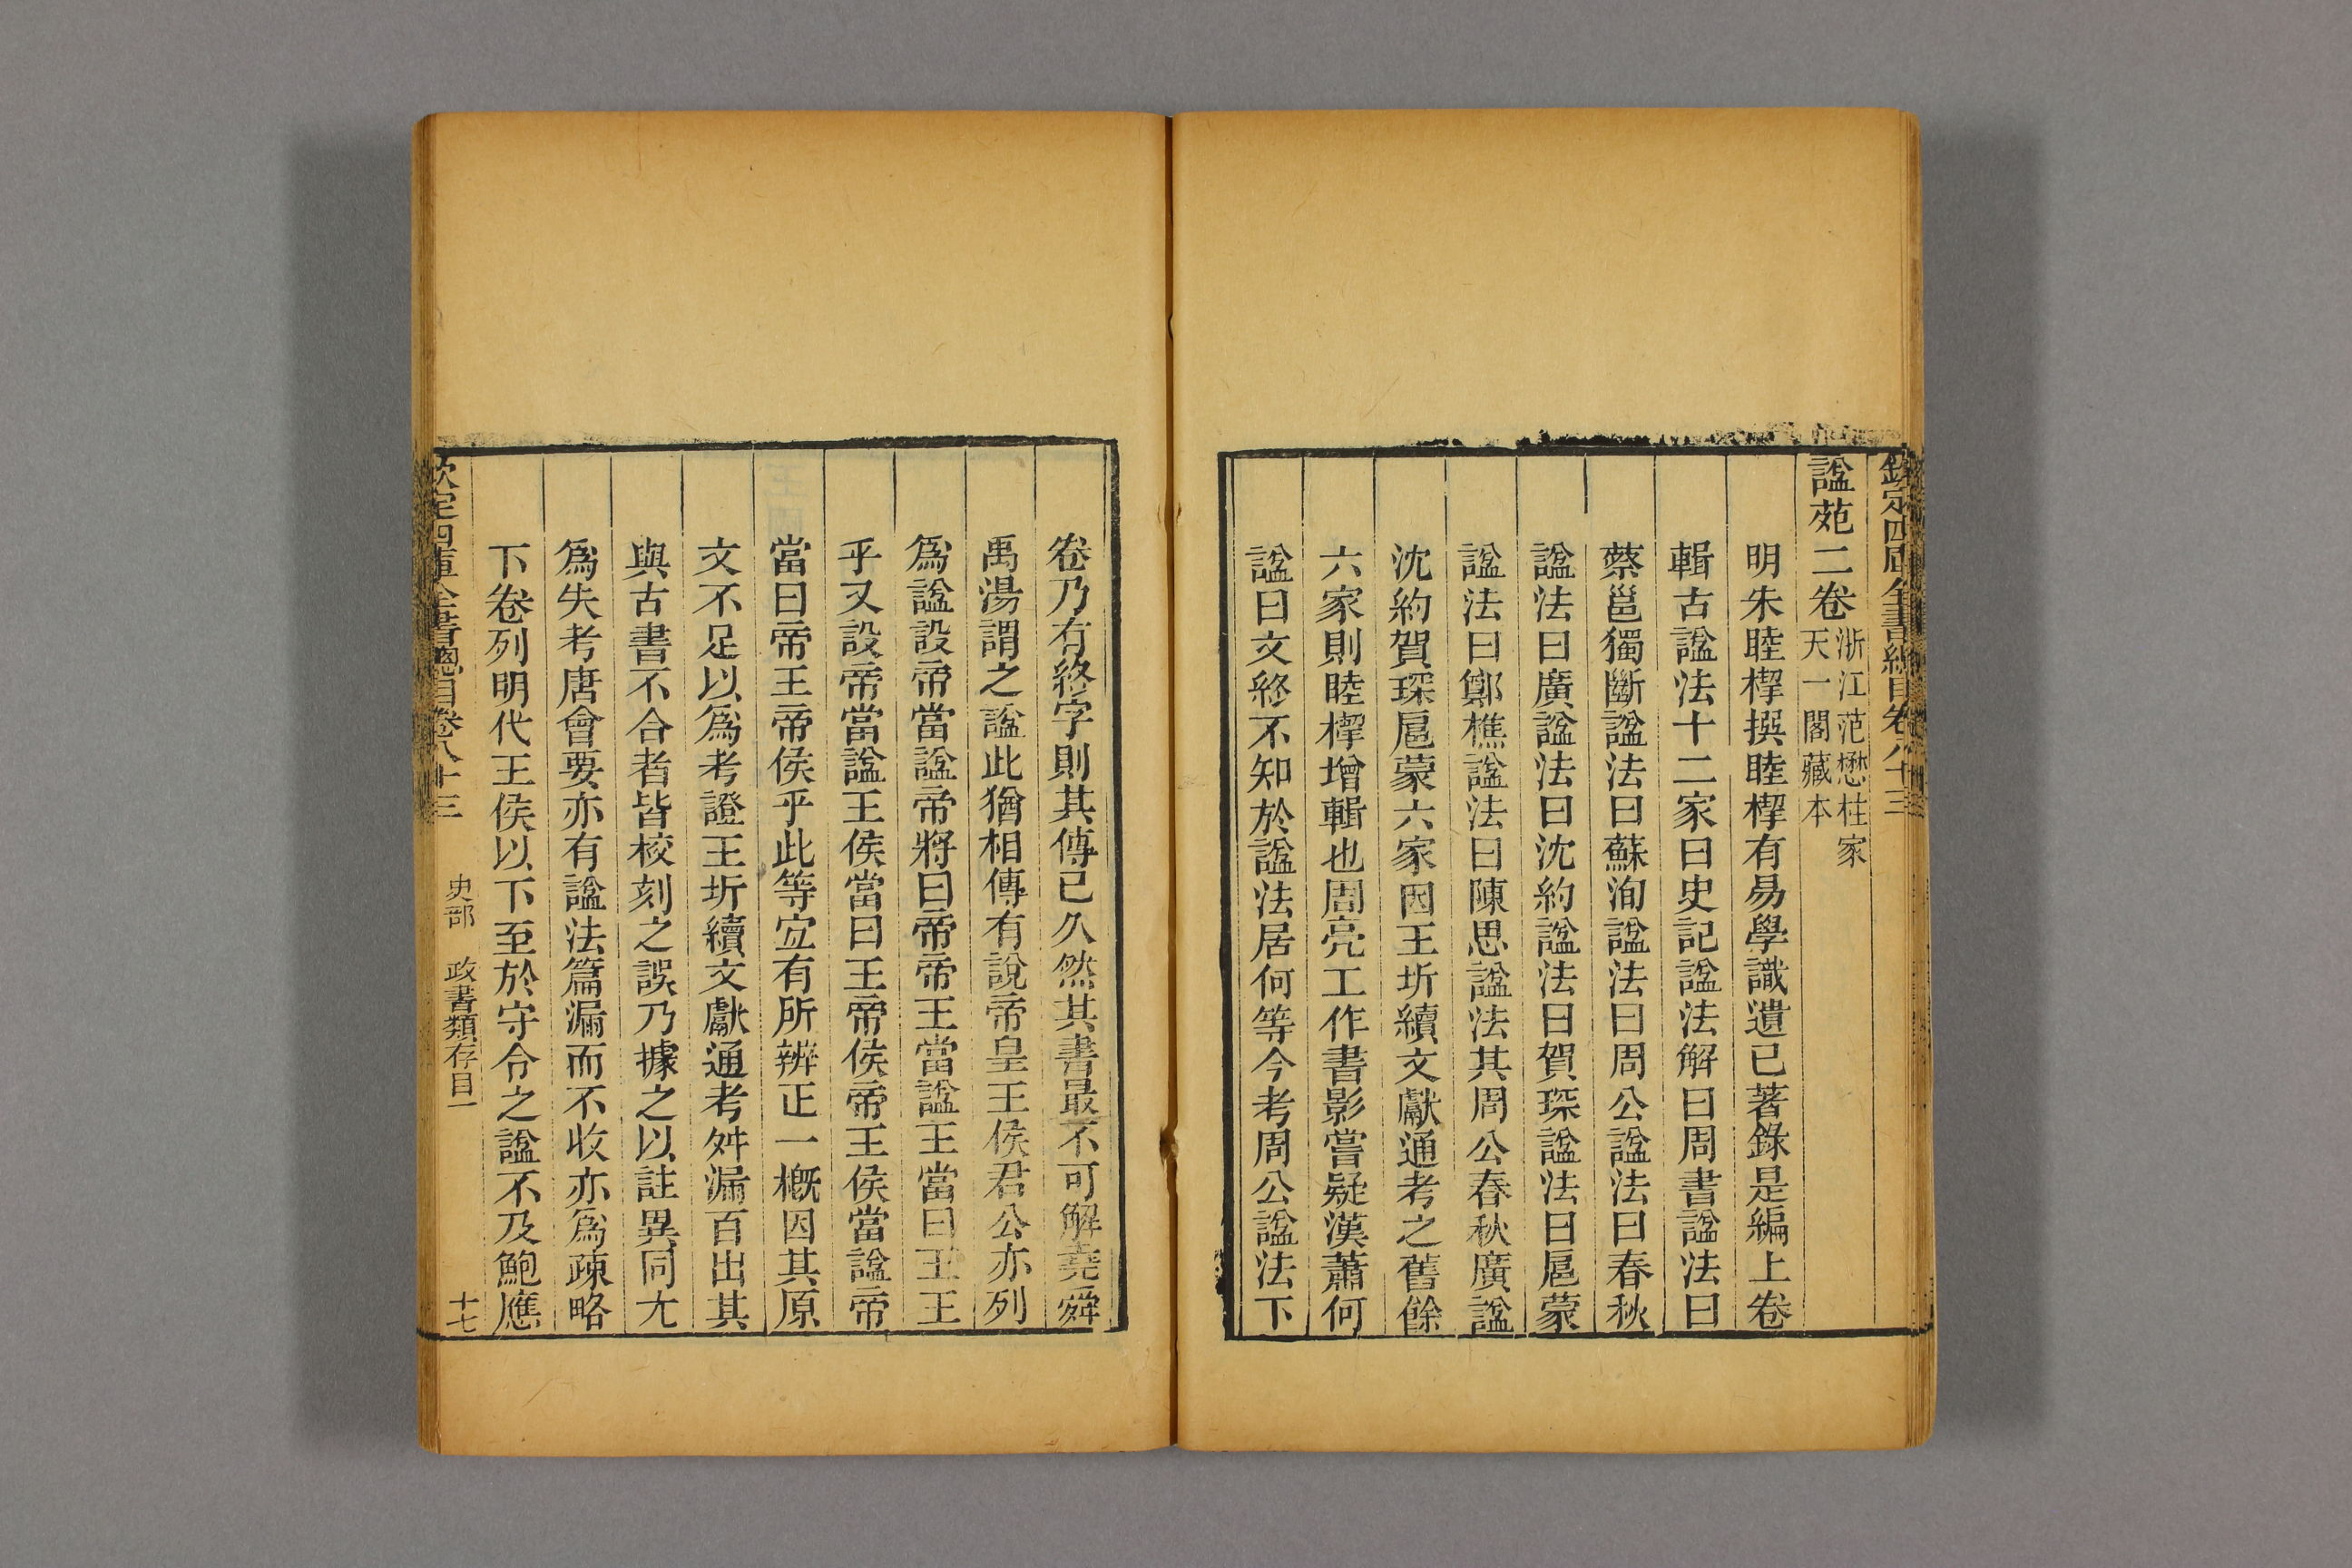 欽定四庫全書總目卷八十三
諡苑二卷
浙江范懋柱家
天一閣藏本
明朱睦㮮撰睦㮮有易學識遺已著錄是編上卷
輯古諡法十二家曰史記諡法解曰周書諡法曰
蔡邕獨斷諡法曰蘇洵諡法曰周公諡法曰春秋
諡法曰廣諡法曰沈約諡法曰賀琛諡法曰扈蒙
諡法曰鄭樵諡法曰陳思諡法其周公春秋廣諡
沈約賀琛扈蒙六家因王圻續文獻通考之舊餘
六家則睦㮮增輯也周亮工作書影嘗疑漢蕭何
諡曰文終不知於諡法居何等今考周公諡法下
卷乃有終字則其傳已久然其書最不可解堯舜
禹湯謂之諡此猶相傳有說帝皇王侯君公亦列
爲諡設帝當諡帝將曰帝帝王當諡王當曰王王
乎又設帝當諡王侯當曰王帝侯帝王侯當諡帝
當曰帝王帝侯乎此等宜有所辨正一槪因其原
文不足以爲考證王圻續文獻通考舛漏百出其
與古書不合者皆校刻之誤乃據之以註異同尤
爲失考唐會要亦有諡法篇漏而不收亦爲疎略
下卷列明代王侯以下至於守令之諡不及鮑應
欽定四庫全書總目卷八十三
史部
政書類存目一
十七